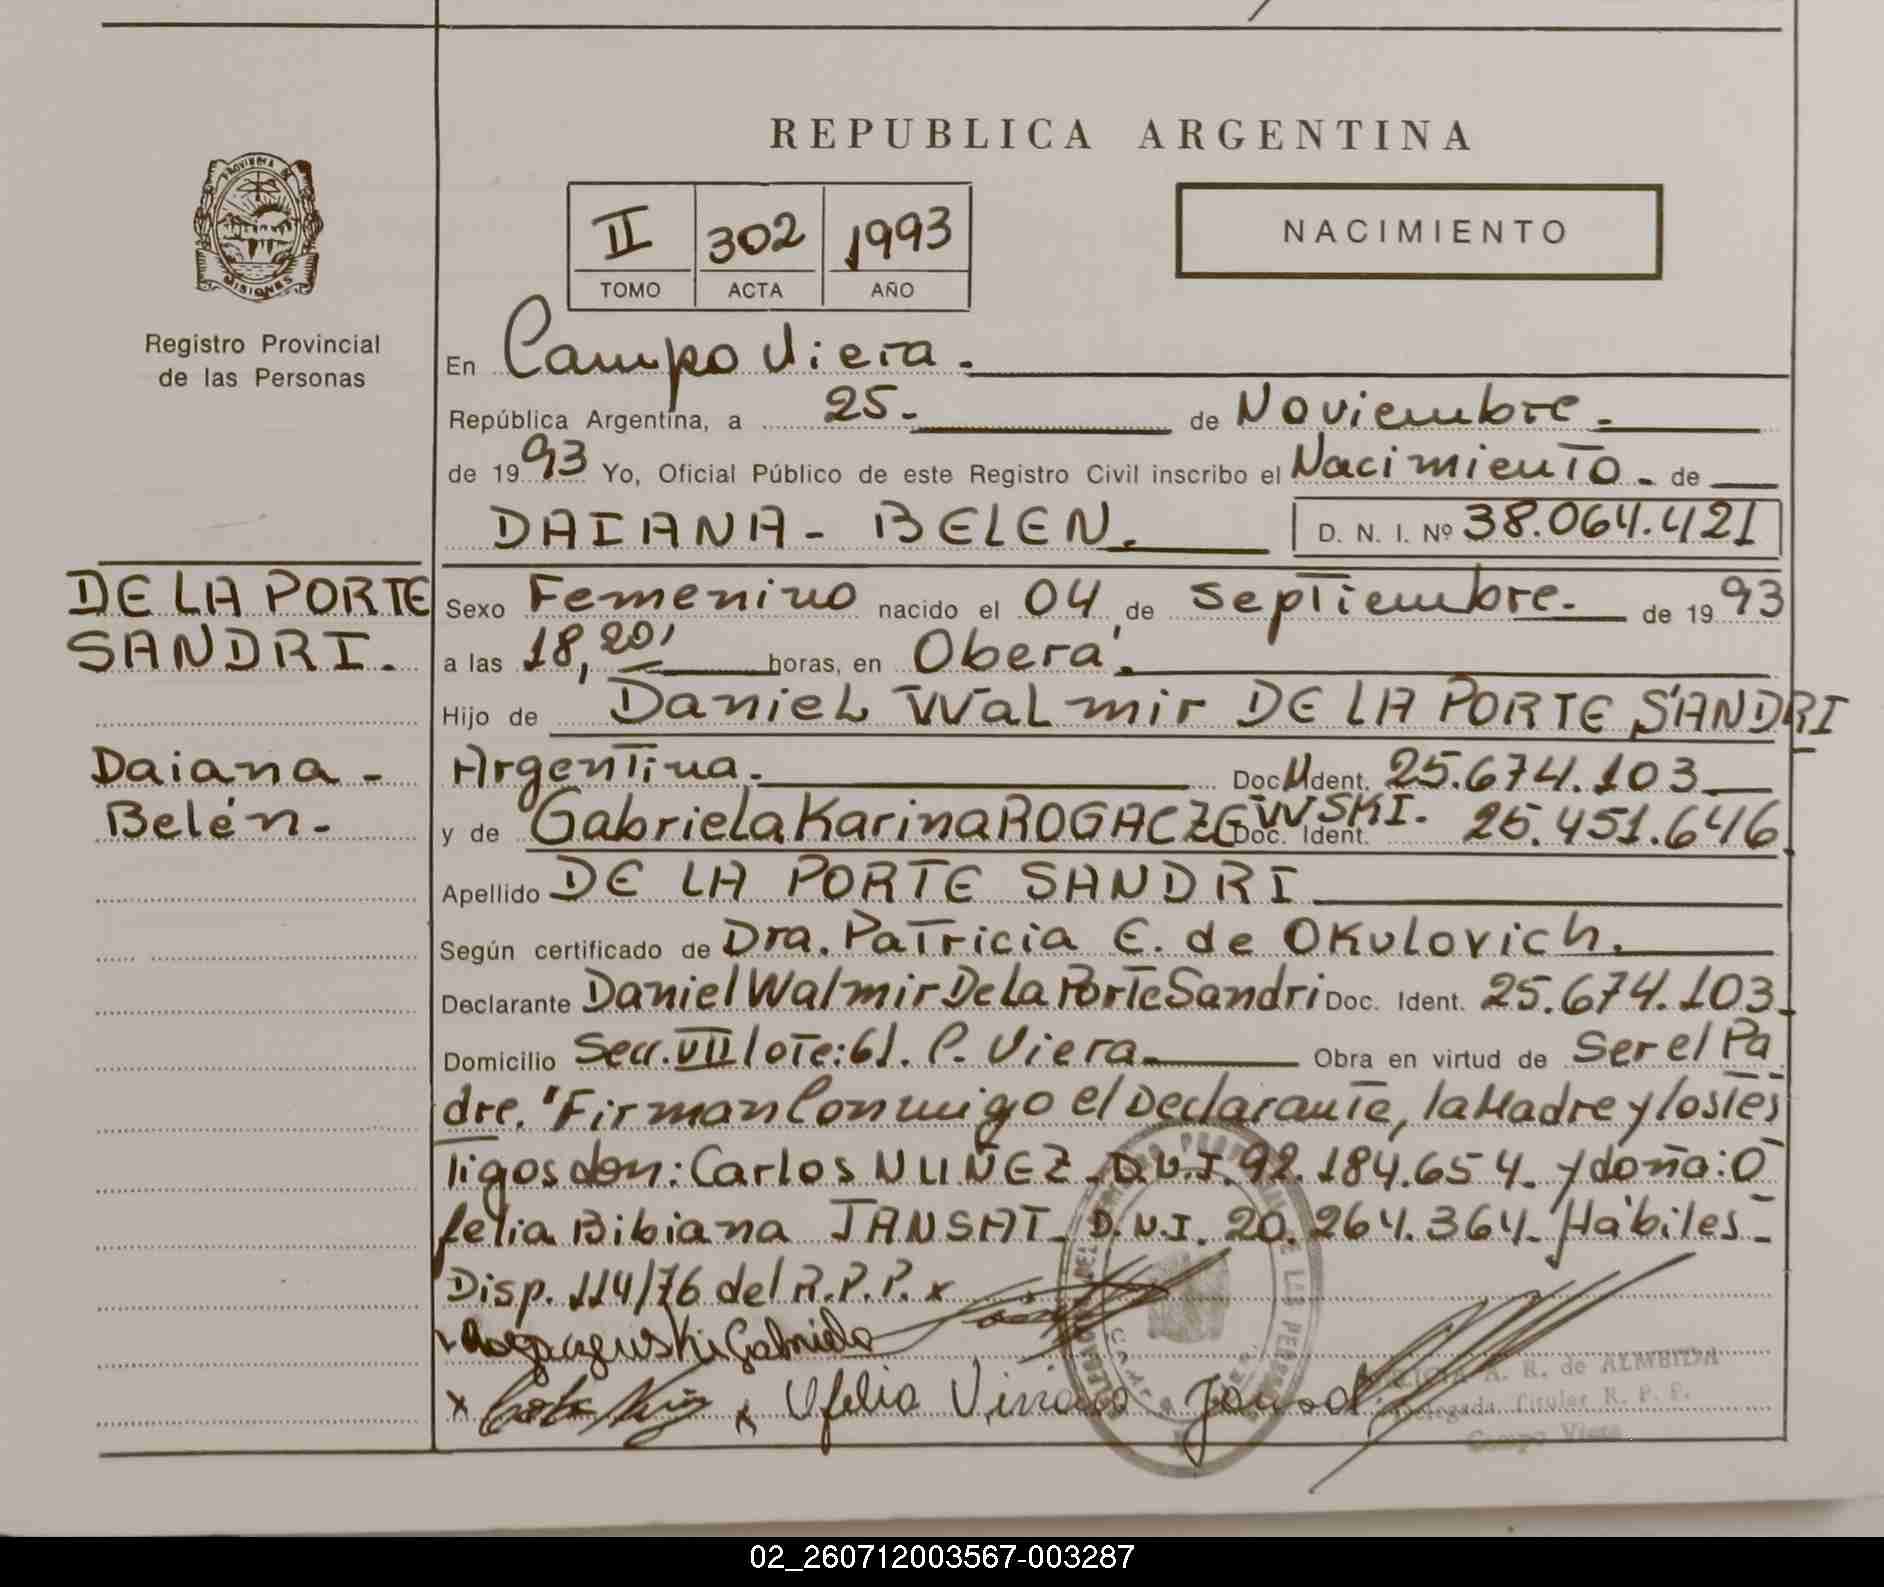 REPUBLICA ARGENTINA
PROVINCIA DE
MISIONES
Registro Provincial
de las Personas
II 302 1993
TOMO ACTA AÑO
NACIMIENTO
En Campo Viera.
República Argentina, a 25. de Noviembre.
de 1993 Yo, Oficial Público de este Registro Civil inscribo el Nacimiento. de
DAIANA - BELEN. D. N. I. Nº 38.064.421
DE LA PORTE
SANDRI.
Daiana -
Belén.
Sexo Femenino nacido el 04 de septiembre. de 1993
a las 18,20' horas, en Oberá.
Hijo de Daniel Walmir DE LA PORTE SANDRI
Argentina. Doc. Ident. 25.674.103
y de Gabriela Karina ROGACZEWSKI. Doc. Ident. 25.451.646
Apellido DE LA PORTE SANDRI
Según certificado de Dra. Patricia E. de Okulovich.
Declarante Daniel Walmir De La Porte Sandri Doc. Ident. 25.674.103
Domicilio Secc. VII lote: 61. C. Viera Obra en virtud de Ser el Pa
dre. "Firman Conmigo el Declarante, la Madre y los tes
tigos don: Carlos NUÑEZ D.N.I. 92.184.654. y doña: O
felia Bibiana JANSAT D.N.I. 20.264.364. Hábiles
Disp. 114/76 del R.P.P. x
Gabriela
x x Ofelia Viviana
A. R. de ALMEIDA
Delegada Titular R. P. P.
Campo Viera
02_260712003567-003287